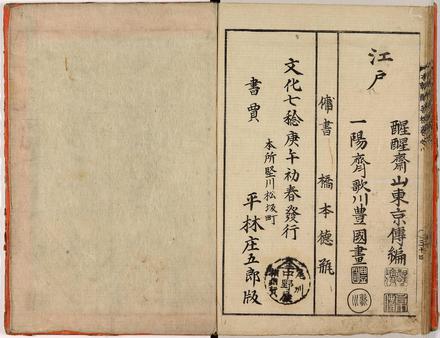 江戸
醒醒齋山東京傳編
一陽齋歌川豊國畫
傭書 橋本德瓶
文化七稔庚午初春發行
本所竪川松坂町
書賈 平林庄五郎版